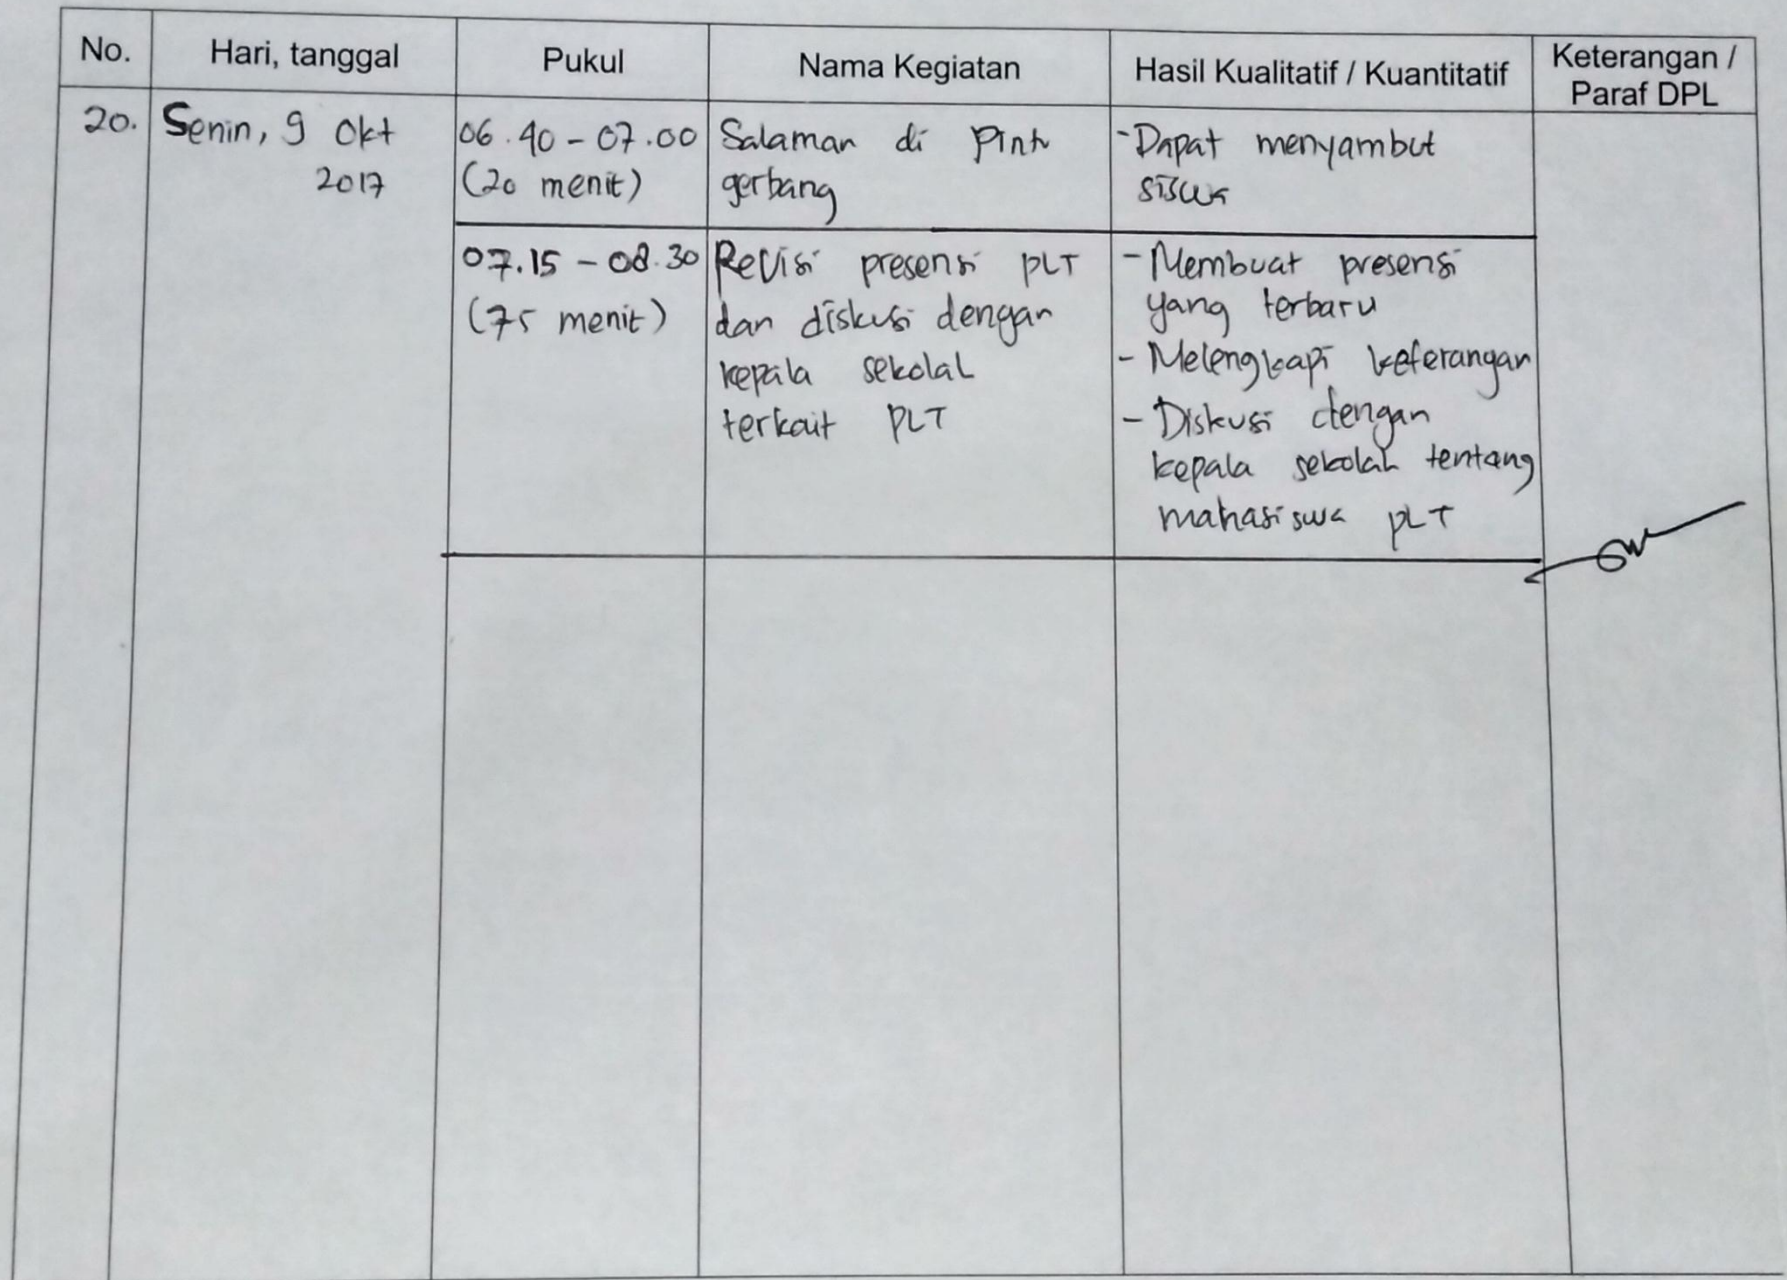 No. Hari, tanggal Pukul Nama Kegiatan Hasil Kualitatif / Kuantitatif Keterangan / Paraf DPL
20. Senin, 9 Okt
2017
06.40 - 07.00
(20 menit)
Salaman di Pintu
gerbang
- Dapat menyambut
siswa
07.15 - 08.30
(75 menit)
Revisi presensi PLT
dan diskusi dengan
kepala sekolah
terkait PLT
- Membuat presensi
yang terbaru
- Melengkapi keterangan
- Diskusi dengan
kepala sekolah tentang
mahasiswa PLT